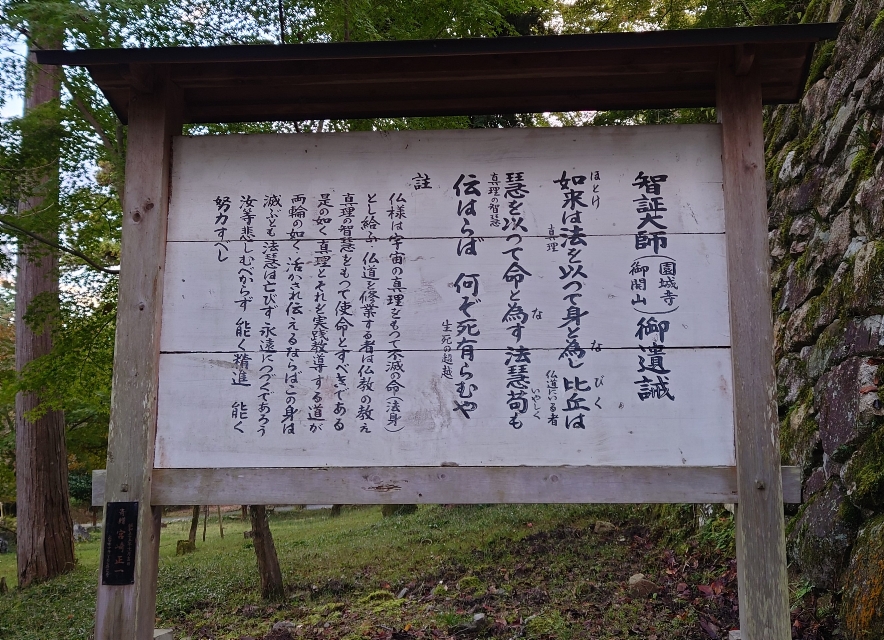 智証大師(園城寺御開山)御遺誡
ほとけ
如来は法を以つて身と為し 比丘は
真理
な
びく
仏道にいる者
慧を以つて命と為す 法慧苟も
真理の智慧
な
いやしく
伝はらば 何ぞ死有らむや
生死の超越
註
仏様は宇宙の真理をもつて不滅の命(法身)
とし給ふ 仏道を修業する者は仏教の教え
真理の智慧をもつて使命とすべきである
是の如く真理とそれを実践教導する道が
両輪の如く活かされ伝えるならばこの身は
滅ぶとも法慧は亡びず永遠につづくであろう
汝等悲しむべからず 能く精進 能く
努力すべし
宮崎正一